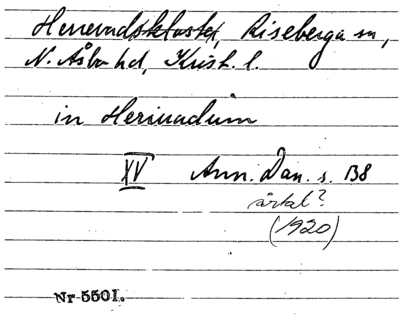 Herrevadskloster, Riseberga sn,
N. Åsbo hd, Krist. l.
in Herivadum
XV Ann. Dan. s. 138
årtal?
(1920)
Nr 5501.